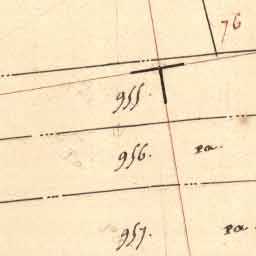 76
955.
956. pa.
957. pa.